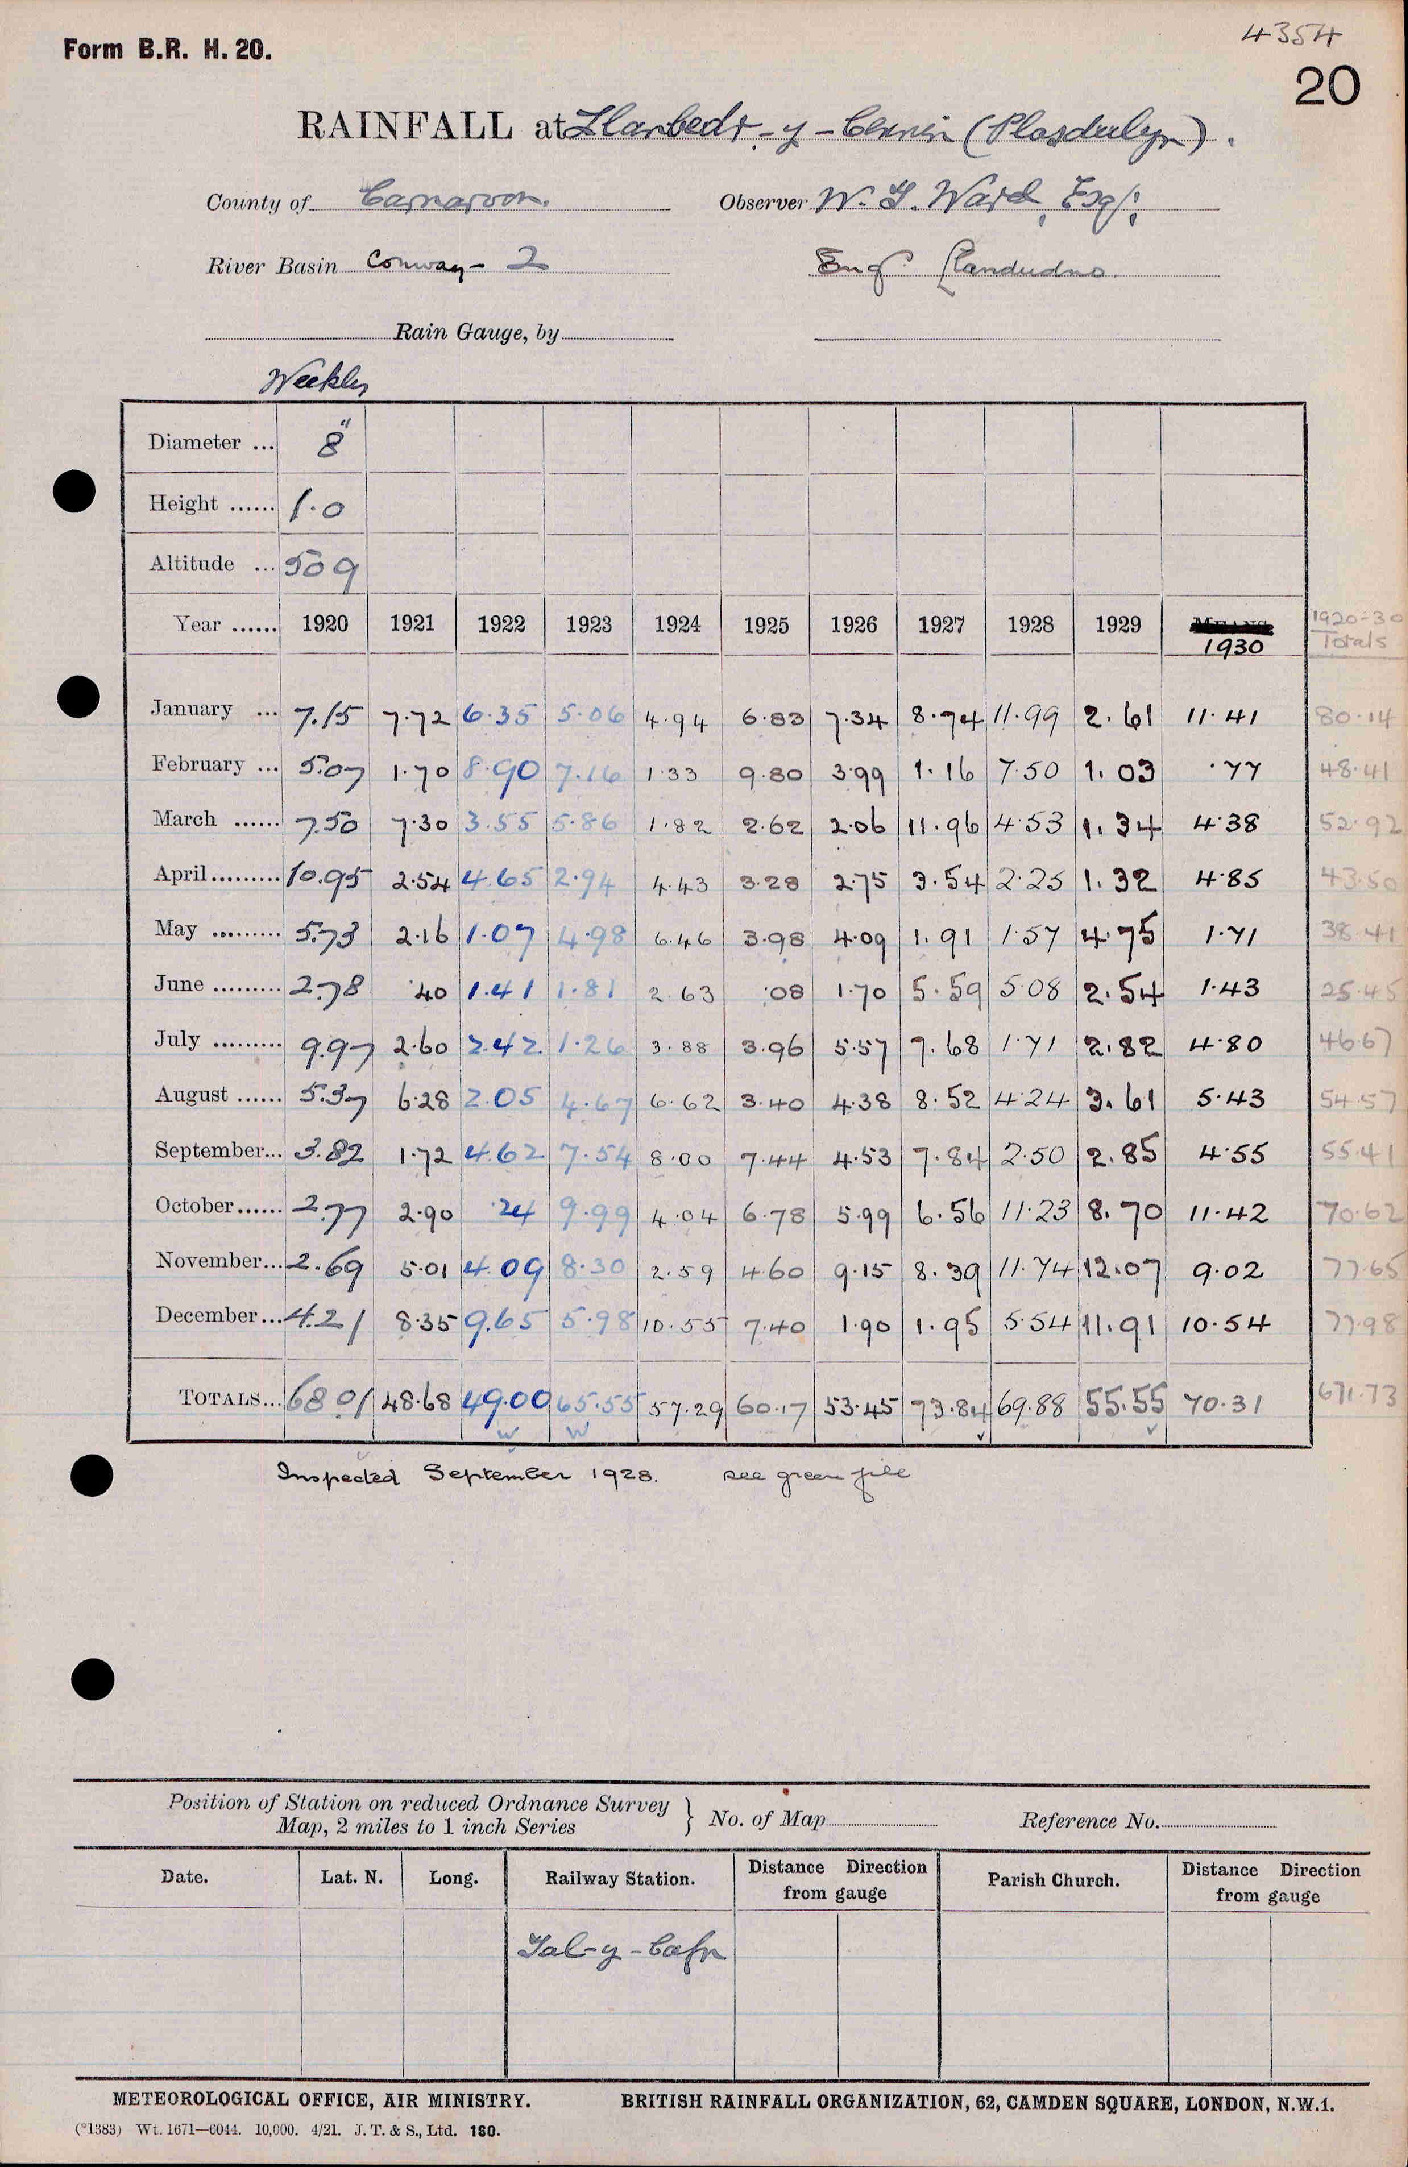 Form B.R. H. 20.
4354
20
RAINFALL at Llanbedr-y-Cennin (Plasdulyn).
County of Carnarvon.
Observer W. T. Ward, Esq.
River Basin Conway - 2
Eng Llandudno.
Rain Gauge, by
Weekly
Diameter ... 8"
Height ...... 1.0
Altitude ... 509
Year ...... 1920 1921 1922 1923 1924 1925 1926 1927 1928 1929 1930 1920-30 Totals
January ... 7.15 7.72 6.35 5.06 4.94 6.83 7.34 8.74 11.99 2.61 11.41 80.14
February ... 5.07 1.70 8.90 7.16 1.33 9.80 3.99 1.16 7.50 1.03 .77 48.41
March ...... 7.50 7.30 3.55 5.86 1.82 2.62 2.06 11.96 4.53 1.34 4.38 52.92
April ......... 10.95 2.54 4.65 2.94 4.43 3.28 2.75 3.54 2.25 1.32 4.85 43.50
May ......... 5.73 2.16 1.07 4.98 6.46 3.98 4.09 1.91 1.57 4.75 1.71 38.41
June ......... 2.78 .40 1.41 1.81 2.63 .08 1.70 5.59 5.08 2.54 1.43 25.45
July ......... 9.97 2.60 2.42 1.26 3.88 3.96 5.57 7.68 1.71 2.82 4.80 46.67
August ...... 5.37 6.28 2.05 4.67 6.62 3.40 4.38 8.52 4.24 3.61 5.43 54.57
September... 3.82 1.72 4.62 7.54 8.00 7.44 4.53 7.84 2.50 2.85 4.55 55.41
October...... 2.77 2.90 .24 9.99 4.04 6.78 5.99 6.56 11.23 8.70 11.42 70.62
November... 2.69 5.01 4.09 8.30 2.59 4.60 9.15 8.39 11.74 12.07 9.02 77.65
December... 4.21 8.35 9.65 5.98 10.55 7.40 1.90 1.95 5.54 11.91 10.54 77.98
TOTALS... 68.01 48.68 49.00 65.55 57.29 60.17 53.45 73.84 69.88 55.55 70.31 671.73
Inspected September 1928. see green file
Position of Station on reduced Ordnance Survey
Map, 2 miles to 1 inch Series } No. of Map Reference No.
Date. Lat. N. Long. Railway Station. Distance Direction from gauge Parish Church. Distance Direction from gauge
Tal-y-Cafn
METEOROLOGICAL OFFICE, AIR MINISTRY. BRITISH RAINFALL ORGANIZATION, 62, CAMDEN SQUARE, LONDON, N.W.1.
(*1383) Wt. 1671—6044. 10,000. 4/21. J. T. & S., Ltd. 180.